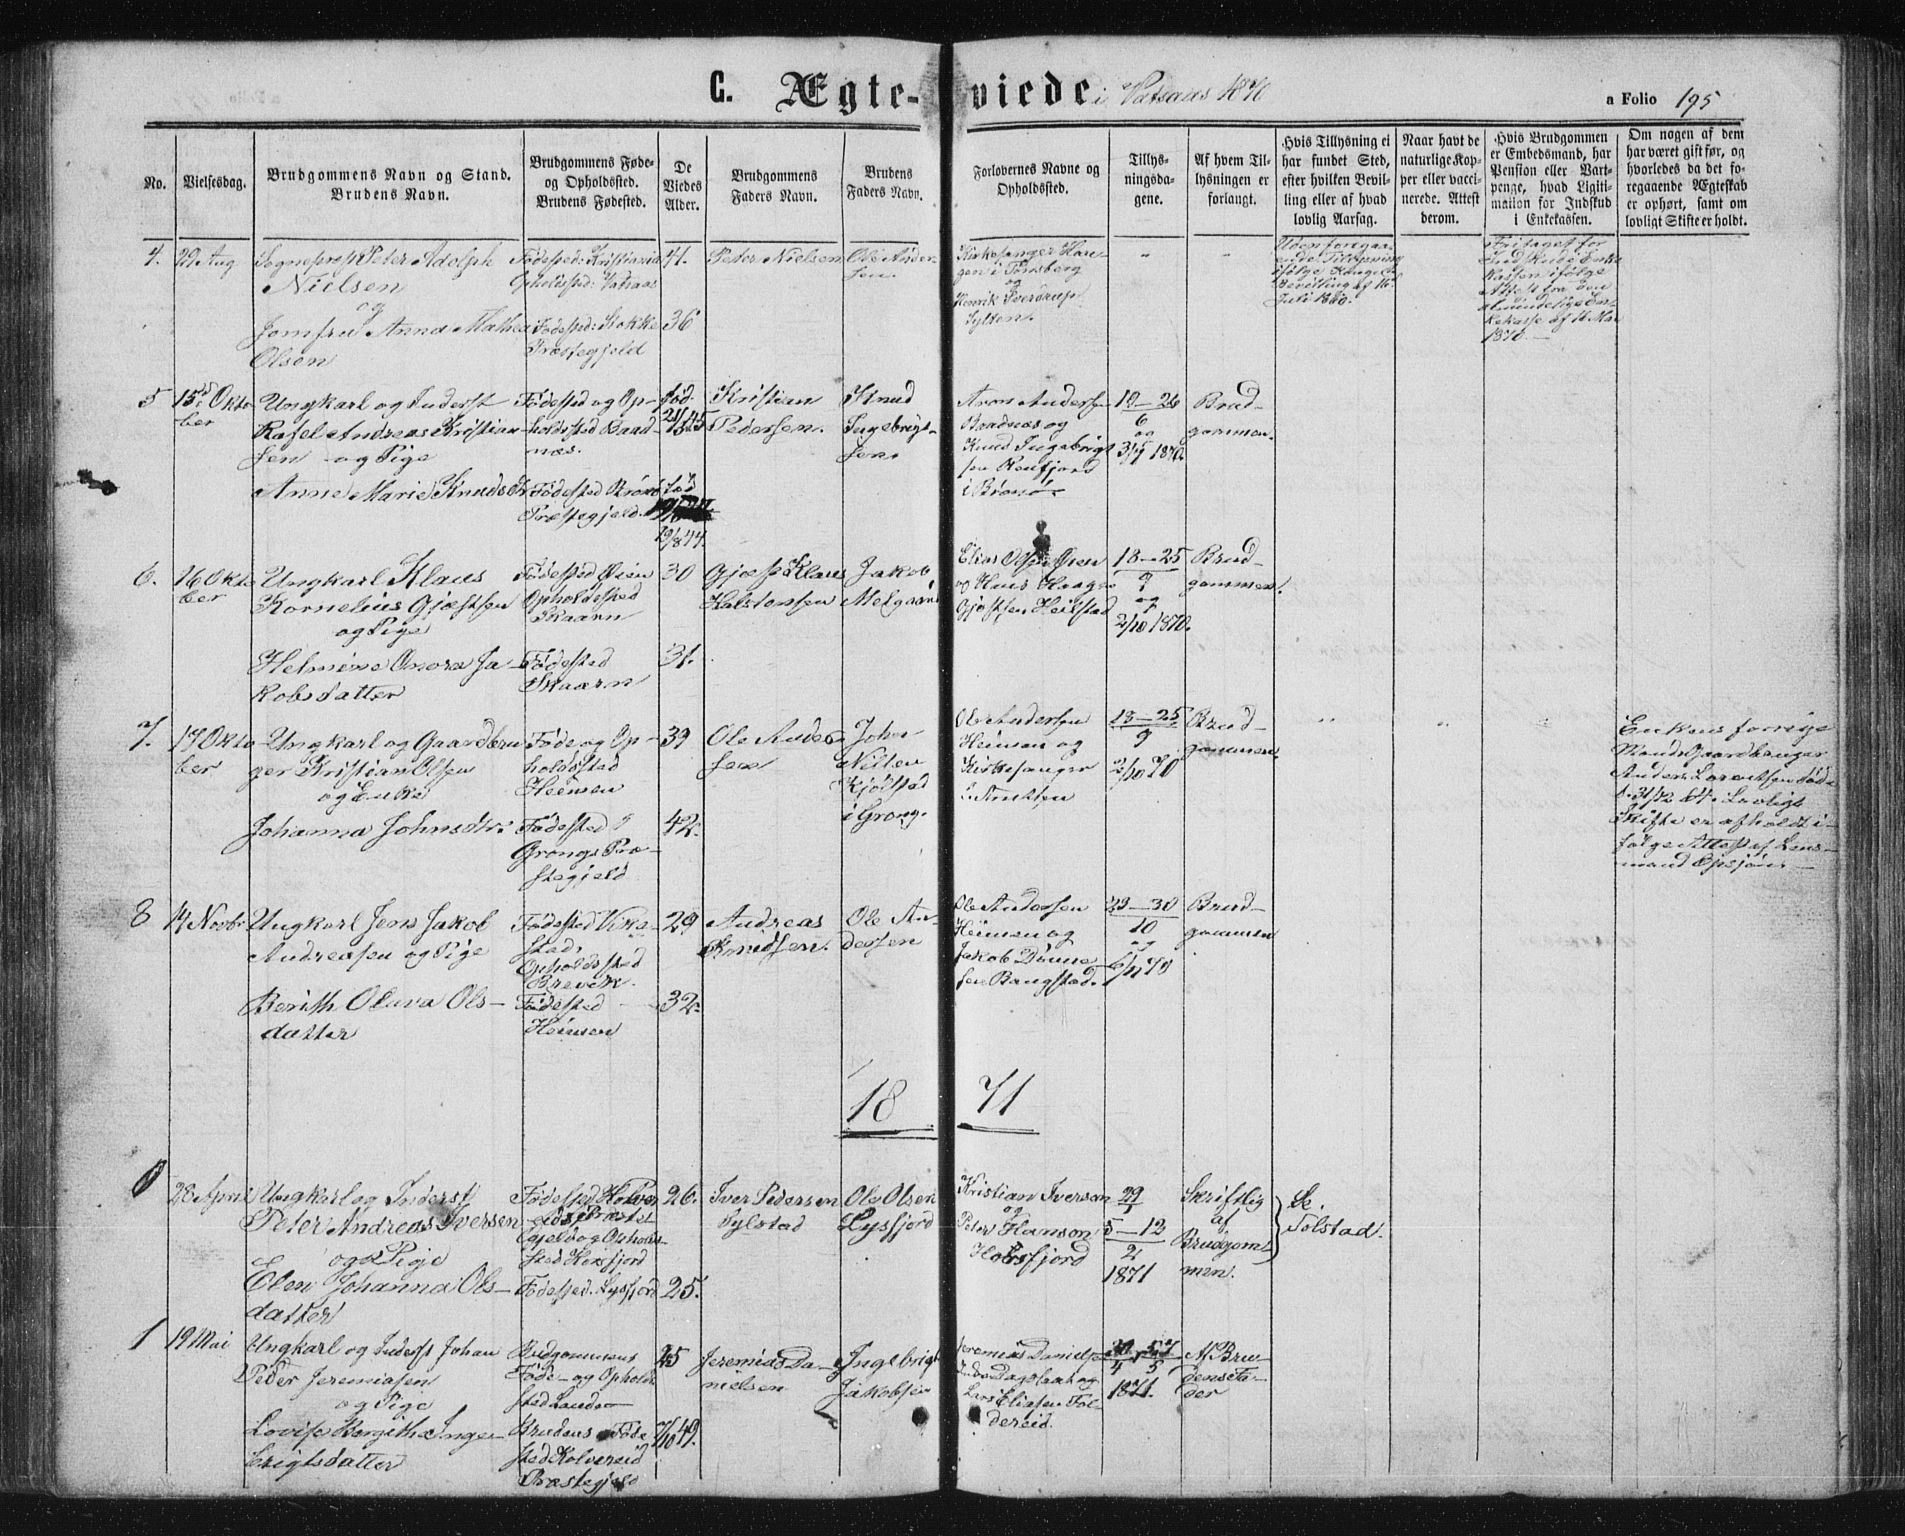 C. Ægte-viede i Vatsaas 1870
a Folio 195
No.
Vielsesdag.
Brudgommens Navn og Stand.
Brudens Navn.
Brudgommens Føde-
og Opholdssted.
Brudens Fødested.
De
Viedes
Alder.
Brudgommens
Faders Navn.
Brudens
Faders Navn.
Forlovernes Navne og
Opholdssted.
Tillys-
ningsda-
gene.
Af hvem Til-
lysningen er
forlangt.
Hvis Tillysning ei
har fundet Sted,
efter hvilken Bevil-
ling eller af hvad
lovlig Aarsag.
Naar havt de
naturlige Kop-
per eller vacci-
nerede. Attest
derom.
Hvis Brudgommen
er Embedsmand, har
Pension eller Vart-
penge, hvad Ligiti-
mation for Indskud
i Enkekassen.
Om nogen af dem
har været gift før, og
hvorledes da det fo-
regaaende Ægteskab
er ophørt, samt om
lovligt Skifte er holdt.
4.
29 Aug
Sogneprest Peter Adolph
Nielsen
og
Jomfru Anna Mathea
Olsen
Fødested: Kristiania
Opholdssted: Vatsaas
Fødested: Stokke
Præstegjeld
41.
36
Peter Nielsen
Ole Ander-
sen
Kirkesanger Hau-
gen i Tønsberg
og
Henrik Sverdrup
Sylten.
"
"
Uden foregaa-
ende Tillysning
ifølge Kongel.
Bevilling af 16
Juli 1869.
Fritaget for
Indskud i Enke-
kassen ifølge
Attest fra den
almindelige En-
kekasse af 16 Mai
1870.
5
15de Okto-
ber
Ungkarl og Inderst
Rafel Andreas Kristian-
sen og Pige
Anne Marie Knudsdtr
Fødested og Op-
holdssted Baad-
næs.
Fødested Brønø
Præstegjeld.
fød
21/3 45
fød
19/8 44.
Kristian
Pedersen.
Knud
Ingebrigt-
sen
Arnt Andersen
Baadnæs og
Knud Ingebrigt
sen Renfjord
i Brønø.
19-26
6
og
3/7 1870.
Brud-
gommen.
6.
16 Okto
ber
Ungkarl Klaus
Kornelius Gjæstsen
og Pige
Helmine Onora Ja-
kobsdatter
Fødested Øien
Opholdssted
Skaarn
Fødested
Skaarn
30
31.
Gjæst Klaus
Halstensen
Jakob
Melgaard
og Hans Haagen
Gjæstsen Heilstad
18-25
9
og
2/10 1870.
Brud-
gommen.
7.
17 Okto
ber
Ungkarl og Gaardbru-
ger Kristian Olsen
og Enke
Johanna Johnsdtr.
Føde og Op-
holdssted
Heimsen
Fødested i
Grongs Præ-
stegjeld
39
42.
Ole Ander-
sen
John
Nilsen
Kjølstad
i Grong.
Ole Andersen
Heimsen og
Kirkesanger
18-25
9
2/10 70
Brud-
gommen
"
"
"
Enkens forrige
Mand Gaardbruger
Anders Lorentsen døde
d. 31/12 67. Lovligt
Skifte er afholdt i-
følge Attest af Lens-
mand
8
14 Novbr
Ungkarl Jens Jakob
Andreasen og Pige
Berith Olava Ols-
datter
Fødested Vika-
stad,
Opholdssted
Brevik.
Fødested
Heimsen
29
32.
Andreas
Ole An-
dersen
Ole Andersen
Heimsen og
Jakob
sen Bangstad.
23-30
10
og
6/11 70
Brud-
gommen
1871
0
28 April
Ungkarl og Inderst
Peter Andreas Iversen
og Pige
Elen Johanna Ols-
datter
Fødested Kolver-
eids Præste-
gjeld og Opholds-
sted Horsfjord
Fødested. Lysfjord
26.
25.
Iver Pedersen
Sylstad
Ole Olsen
Lysfjord
Kristian Iversen
og
Peter Hanson
Horsfjord
29
1
5-12
2
1871
Skriftlig
af
Brudgom-
men.
Se
Tolstad.
1
19 Mai
Ungkarl og Inderst Johan
Peder Jeremiasen
og Pige
Lovise Bergitha Inge-
brigtsdatter
Brudgommens
Føde- og Opholds-
sted
Brudens Føde
sted Kolvereid
Præstegjeld
25
7/10 49.
Jeremias Da-
nielsen
Ingebrigt
Jakobsen
Jeremias Danielsen
Lars Eliasen Fol-
dereid.
1871.
Af Bru-
dens Fa-
der